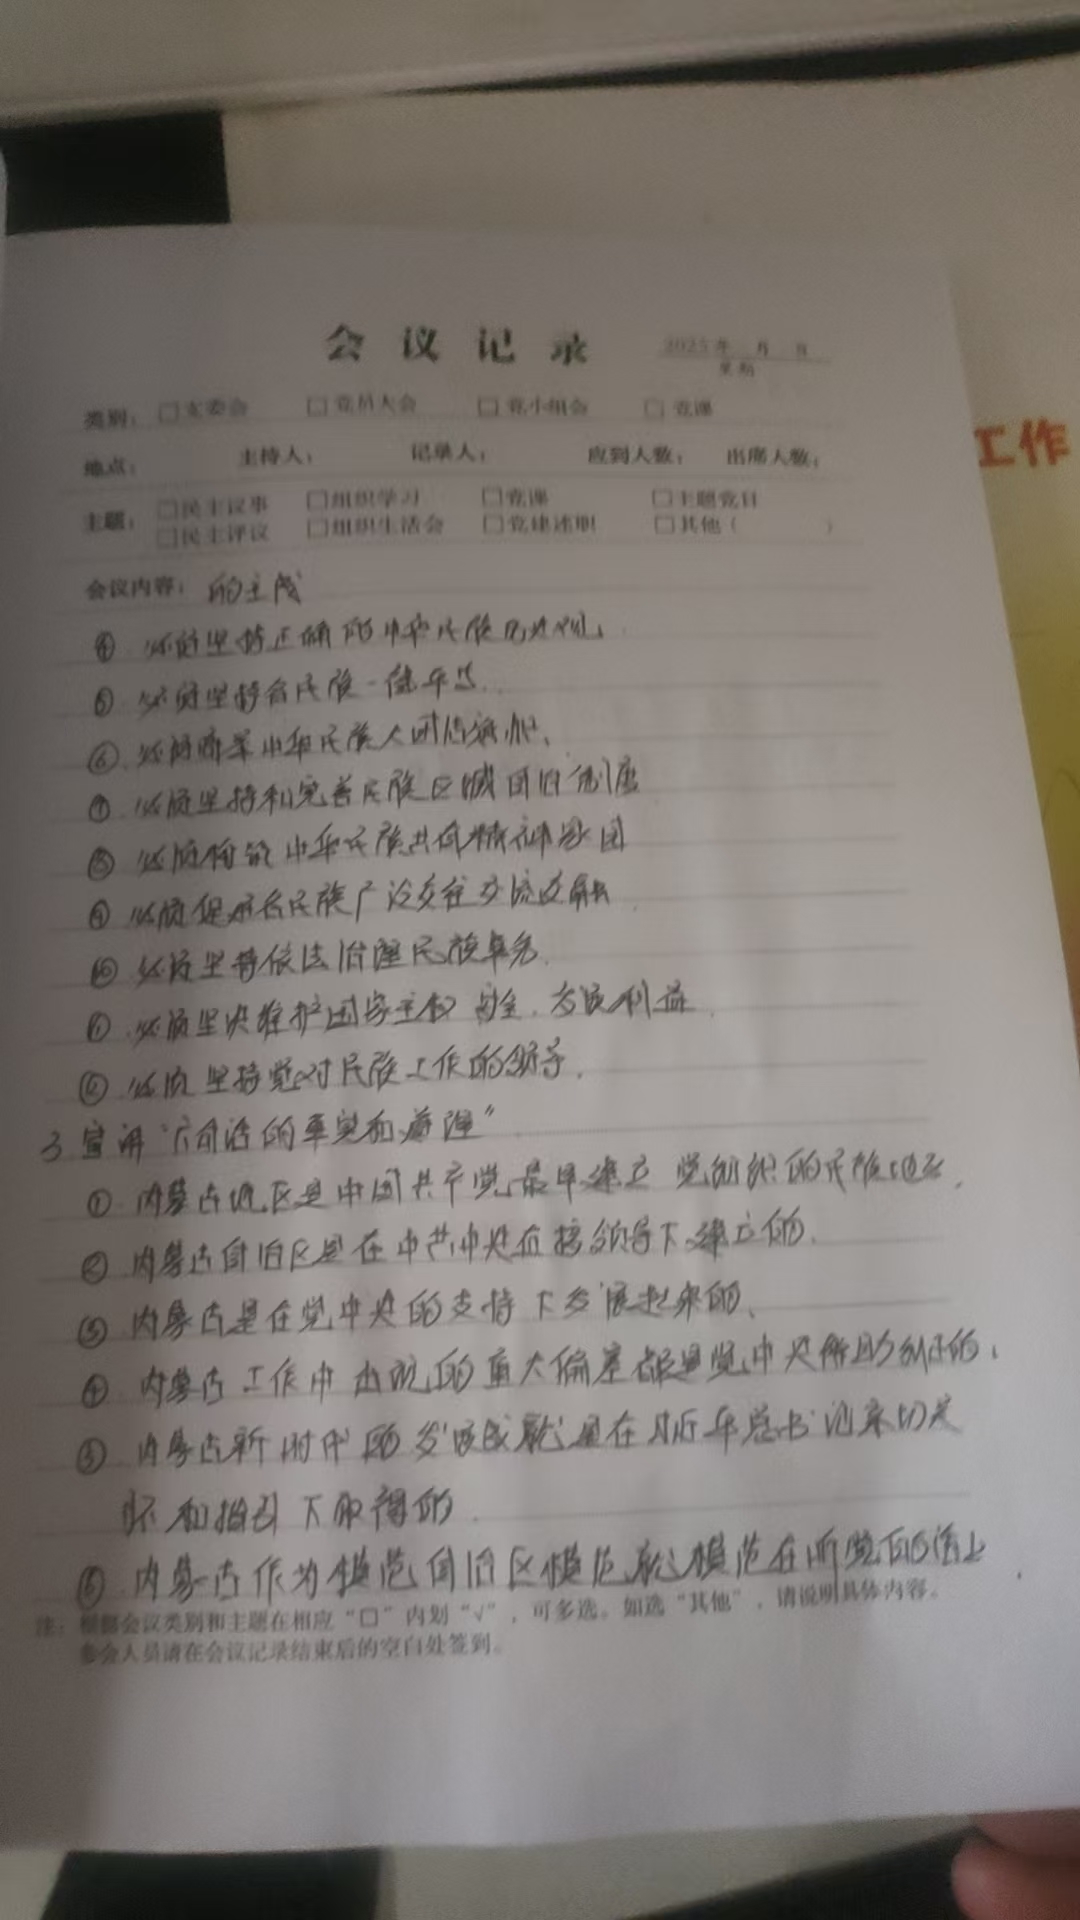 会议记录 2025年 月 日
星期
工作
类别: □支委会 □党员大会 □党小组会 □党课
地点: 主持人: 记录人: 应到人数: 出席人数:
主题: □民主议事 □组织学习 □党课 □主题党日
□民主评议 □组织生活会 □党建述职 □其他( )
会议内容: 的主线
④ 必须坚持正确的中华民族历史观。
⑤ 必须坚持各民族一律平等.
⑥ 必须高举中华民族大团结旗帜、
⑦ 必须坚持和完善民族区域自治制度
⑧ 必须构筑中华民族共有精神家园
⑨ 必须促进各民族广泛交往交流交融
⑩ 必须坚持依法治理民族事务.
⑪ 必须坚决维护国家主权、安全、发展利益.
⑫ 必须坚持党对民族工作的领导.
3 宣讲"六句话的事实和道理"
① 内蒙古地区是中国共产党最早建立党组织的民族地区.
② 内蒙古自治区是在中共中央直接领导下建立的.
③ 内蒙古是在党中央的支持下发展起来的、
④ 内蒙古工作中出现的重大偏差都是党中央帮助纠正的,
⑤ 内蒙古新时代的发展成就是在习近平总书记亲切关
怀和指引下取得的
⑥ 内蒙古作为模范自治区模范就模范在听党的话上
注: 根据会议类别和主题在相应"□"内划"√",可多选。如选"其他",请说明具体内容。
参会人员请在会议记录结束后的空白处签到。